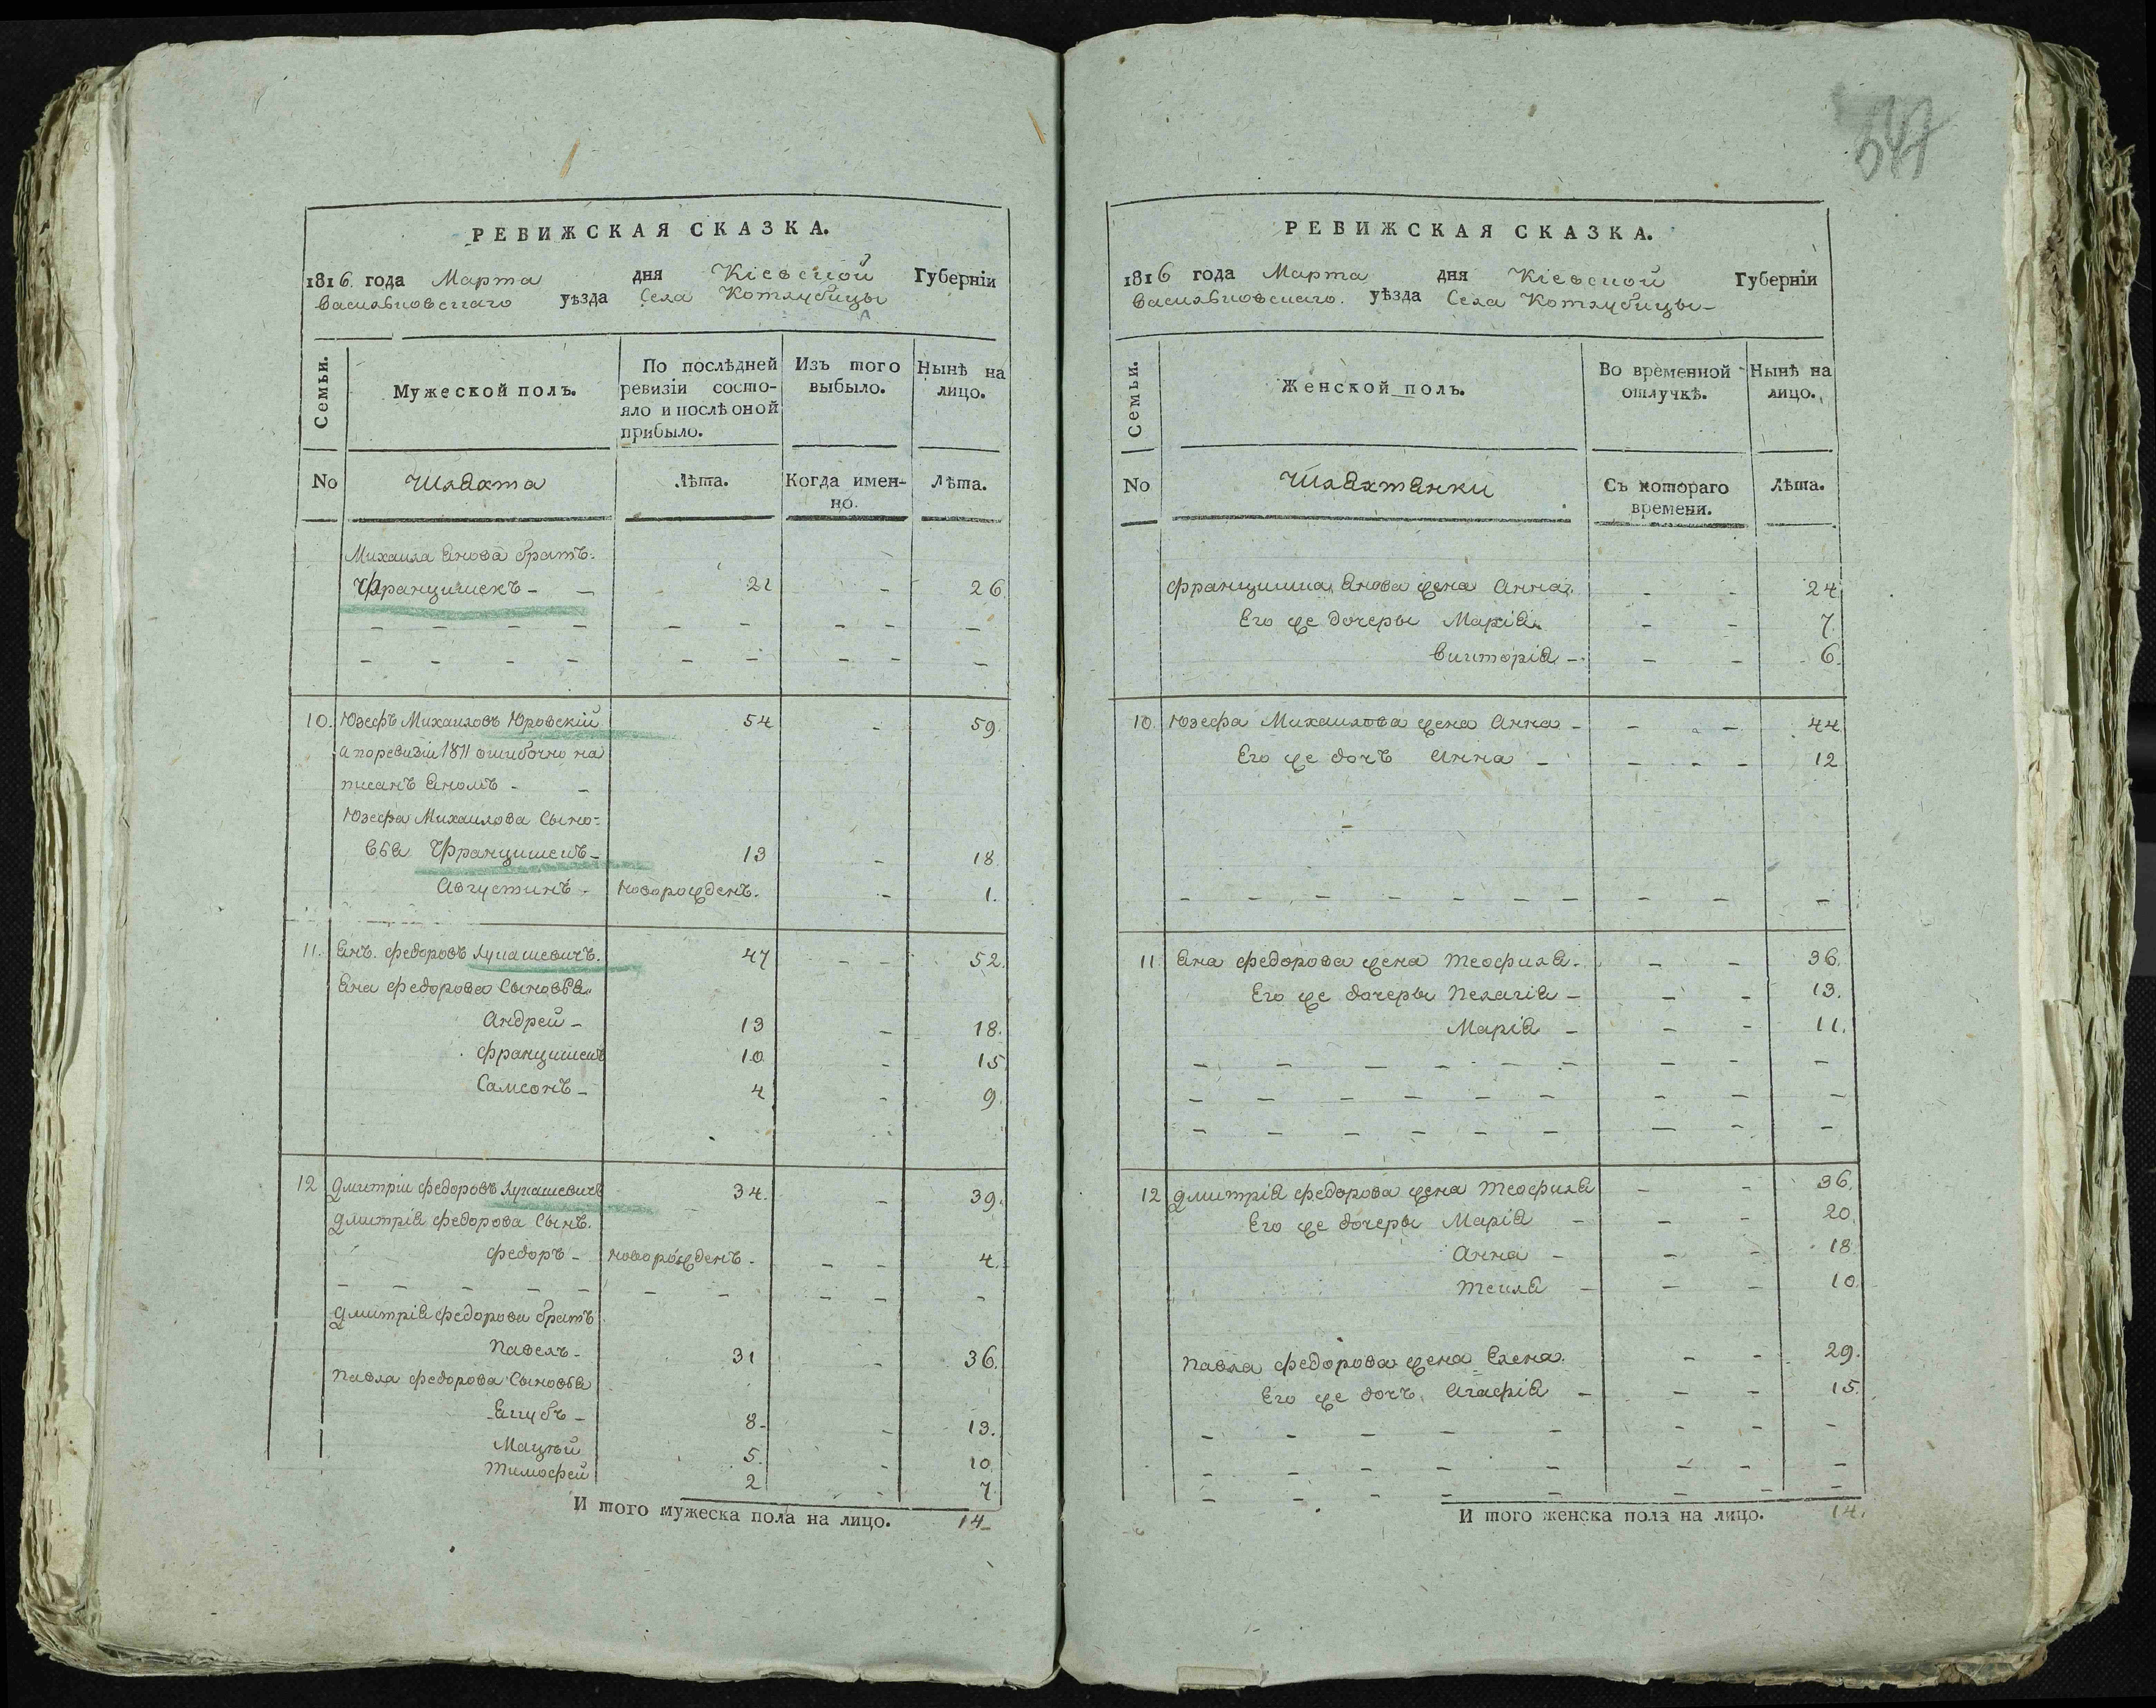 347
РЕВИЖСКАЯ СКАЗКА.
1816. года Марта дня Кіевской Губерніи
Васильковскаго уѣзда Села Котлубицы
Семьи.
Мужеской полъ.
По послѣдней ревизіи состо-
яло и послѣ оной
прибыло.
Изъ того
выбыло.
Нынѣ на
лицо.
No
Шляхта
Лѣта.
Когда имен-
но.
Лѣта.
Михаила Янова братъ:
Францишекъ - - 21 - 26.
- - - - - - - - -
- - - - - - - - -
10. Юзефъ Михаиловъ Юровскій 54 - 59.
а поревизіи 1811 ошибочно на
писанъ Яномъ - -
Юзефа Михаилова Сыно-
вья Францишекъ - 13 - 18
Августинъ - новорожденъ. - 1.
11. Янъ. Федоровъ Лукашевичъ. 47 - - 52.
Яна Федорова Сыновья
Андрей - 13 - 18.
Францишекъ 10 - 15
Самсонъ - 4 - 9.
12 Дмитрій Федоровъ Лукашевичъ 34. - 39.
Дмитрія Федорова Сынъ.
Федоръ - новорожденъ - - - 4.
- - - - - - - - - -
Дмитрія Федорова братъ
Павелъ - 31 - 36.
Павла Федорова Сыновья
Якубъ - 8 - - 13.
Мацѣй 5. - 10.
Тимофей 2 - 7
И того мужеска пола на лицо. 14
РЕВИЖСКАЯ СКАЗКА.
1816 года Марта дня Кіевской Губерніи
Васильковскаго. уѣзда Села Котлубицы -
Семьи.
Женской полъ.
Во временной
отлучкѣ.
Нынѣ на
лицо.
No
Шляхтянки
Съ котораго
времени.
Лѣта.
Францишка Янова жена Анна. - - 24
Его же дочеры Марія - - 7.
Викторія - - - 6.
10. Юзефа Михаилова жена Анна - - - 44
Его же дочъ Анна - - - - 12
-
- - - - - - - - - -
11 Яна Федорова жена Теофиля - - - 36.
Его же дочеры Пелагія - - - 13.
Марія - - - 11.
- - - - - - - - -
- - - - - - - - -
- - - - - - - - -
12 Дмитрія Федорова жена Теофиля - - 36.
Его же дочеры Марія - - - 20.
Анна - - - 18.
Текля - - - 10.
Павла Федорова жена Елена. - - 29.
Его же дочъ Агафія - - - 15.
- - - - - - - -
- - - - - - - -
- - - - - - - - -
И того женска пола на лицо. 14.